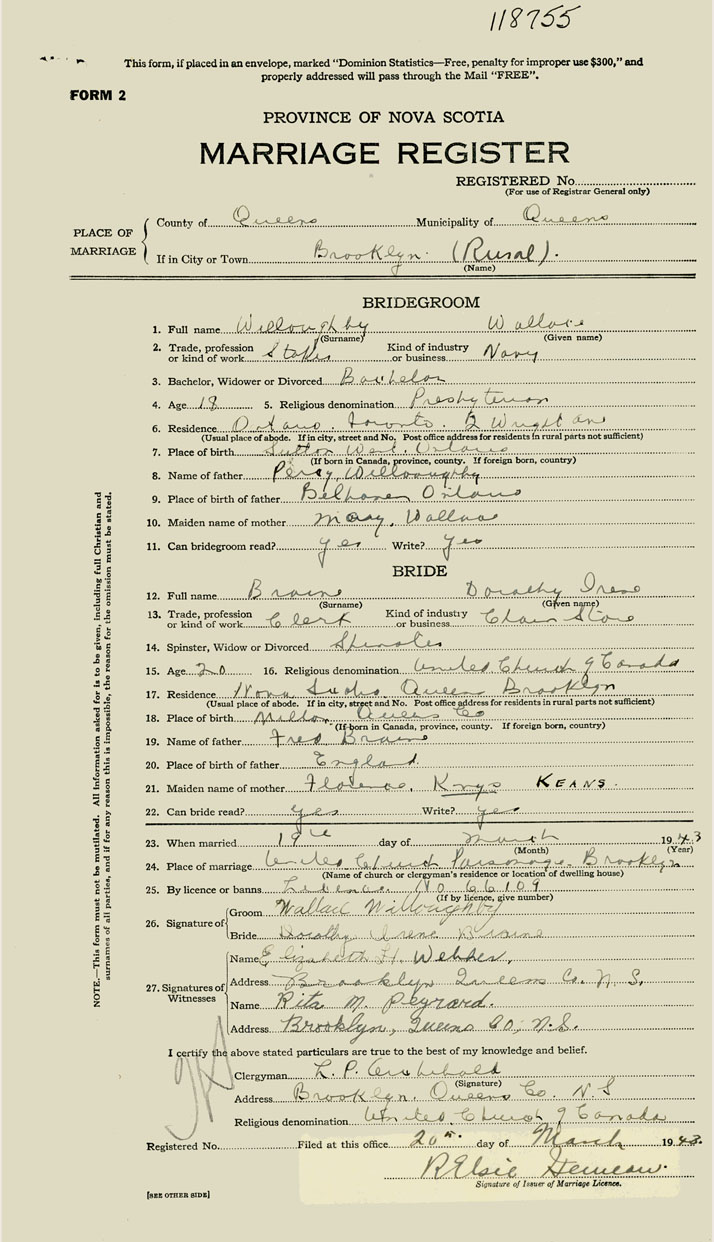 118755
This form, if placed in an envelope, marked "Dominion Statistics—Free, penalty for improper use $300," and
properly addressed will pass through the Mail "FREE".
FORM 2
PROVINCE OF NOVA SCOTIA
MARRIAGE REGISTER
REGISTERED No.
(For use of Registrar General only)
PLACE OF MARRIAGE
County of Queens Municipality of Queens
If in City or Town Brooklyn (Rural).
(Name)
BRIDEGROOM
1. Full name Willoughby Wallace
(Surname) (Given name)
2. Trade, profession or kind of work Kind of industry or business Navy
3. Bachelor, Widower or Divorced Bachelor
4. Age 18 5. Religious denomination Presbyterian
6. Residence Ontario Toronto 2 Wright ave
(Usual place of abode. If in city, street and No. Post office address for residents in rural parts not sufficient)
7. Place of birth Sutton West Ontario
(If born in Canada, province, county. If foreign born, country)
8. Name of father Percy Willoughby
9. Place of birth of father Belhaven Ontario
10. Maiden name of mother May, Wallace
11. Can bridegroom read? yes Write? yes
BRIDE
12. Full name Braine Dorothy Irene
(Surname) (Given name)
13. Trade, profession or kind of work Clerk Kind of industry or business Chain Store
14. Spinster, Widow or Divorced Spinster
15. Age 20 16. Religious denomination United Church of Canada
17. Residence Nova Scotia Queens Brooklyn
(Usual place of abode. If in city, street and No. Post office address for residents in rural parts not sufficient)
18. Place of birth Milton Queens Co
(If born in Canada, province, county. If foreign born, country)
19. Name of father Fred Braine
20. Place of birth of father England
21. Maiden name of mother Florence, KEANS.
22. Can bride read? yes Write? yes
23. When married 19th day of March 1943
(Month) (Year)
24. Place of marriage United Church Parsonage Brooklyn
(Name of church or clergyman's residence or location of dwelling house)
25. By licence or banns Licence No 66109
(If by licence, give number)
26. Signature of
Groom Wallace Willoughby
Bride Dorothy Irene Braine
27. Signatures of Witnesses
Name Elizabeth H. Webber,
Address Brooklyn Queens Co. N. S.
Name Rita M. Peyrard.
Address Brooklyn, Queens Co, N.S.
I certify the above stated particulars are true to the best of my knowledge and belief.
Clergyman L. P. Archibald
(Signature)
Address Brooklyn. Queens Co. N.S
Religious denomination United Church of Canada
Registered No. Filed at this office 20th day of March 1943.
R Elsie
Signature of Issuer of Marriage Licence.
[SEE OTHER SIDE]
NOTE.—This form must not be mutilated. All information asked for is to be given, including full Christian and
surnames of all parties, and if for any reason this is impossible, the reason for the omission must be stated.